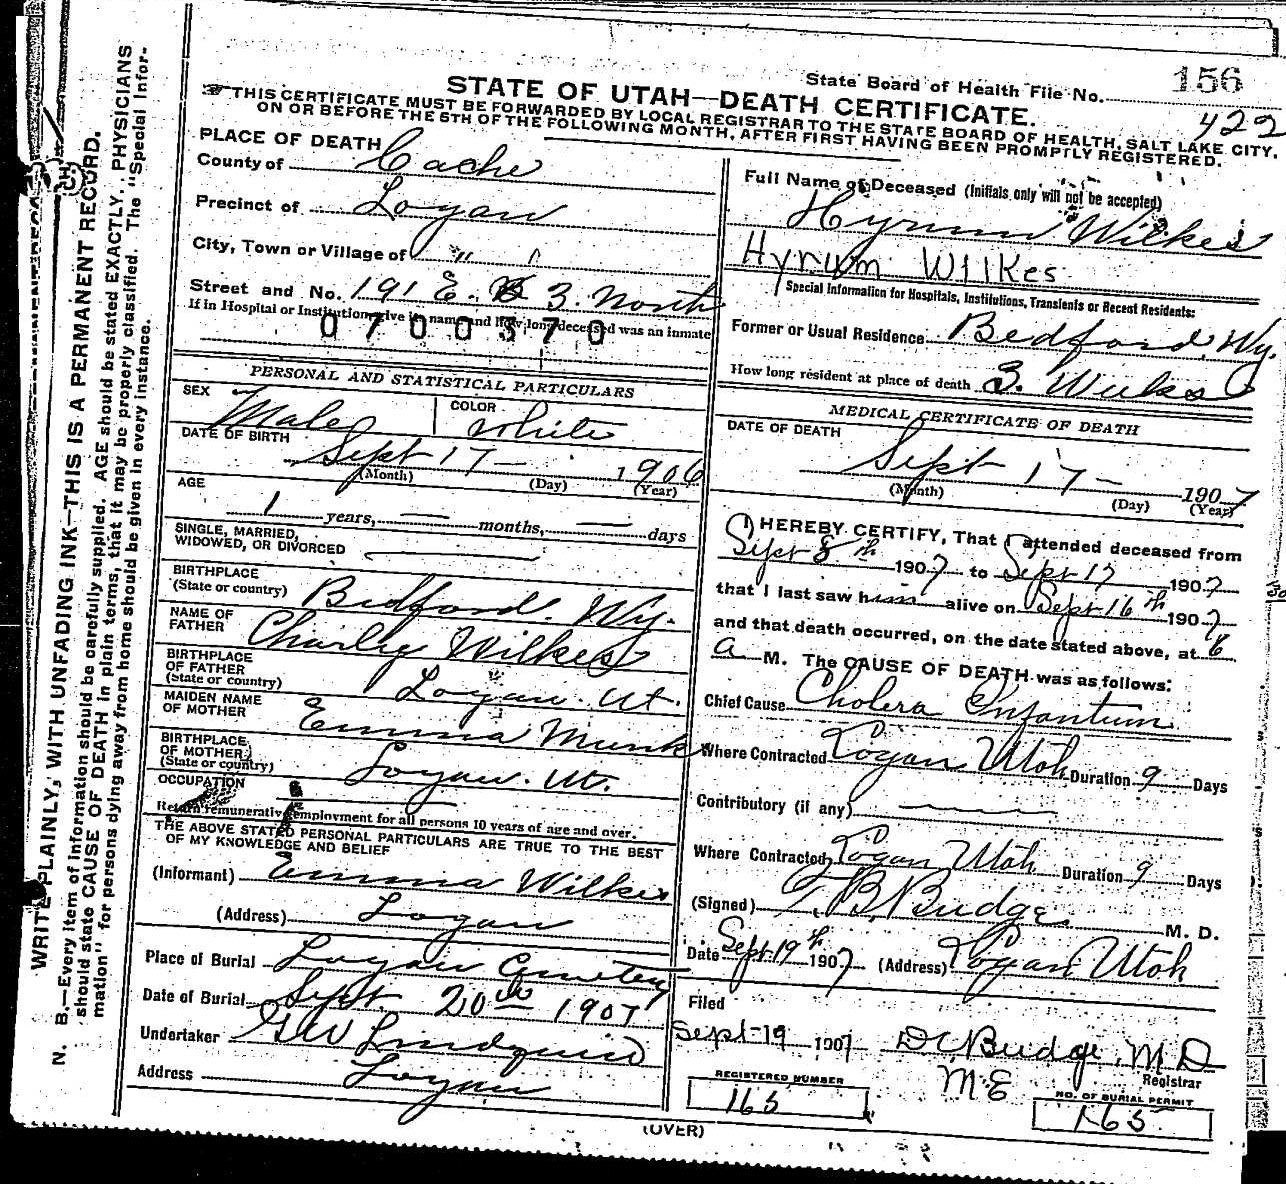 State Board of Health File No. 156
STATE OF UTAH—DEATH CERTIFICATE.
422
THIS CERTIFICATE MUST BE FORWARDED BY LOCAL REGISTRAR TO THE STATE BOARD OF HEALTH, SALT LAKE CITY,
ON OR BEFORE THE 5TH OF THE FOLLOWING MONTH, AFTER FIRST HAVING BEEN PROMPTLY REGISTERED.
WRITE PLAINLY, WITH UNFADING INK—THIS IS A PERMANENT RECORD.
N. B.—Every item of information should be carefully supplied. AGE should be stated EXACTLY. PHYSICIANS
should state CAUSE OF DEATH in plain terms, that it may be properly classified. The "Special Infor-
mation" for persons dying away from home should be given in every instance.
PLACE OF DEATH
County of Cache
Precinct of Logan
City, Town or Village of " "
Street and No. 191 E. 3. North
If in Hospital or Institution give its name and how long deceased was an inmate
0700370
PERSONAL AND STATISTICAL PARTICULARS
SEX Male COLOR White
DATE OF BIRTH
Sept 17— 1906
(Month) (Day) (Year)
AGE
1 years, — months, — days
SINGLE, MARRIED,
WIDOWED, OR DIVORCED —
BIRTHPLACE
(State or country) Bedford. Wy.
NAME OF
FATHER Charley Wilkes
BIRTHPLACE
OF FATHER
(State or country) Logan. Ut.
MAIDEN NAME
OF MOTHER Emma Munk
BIRTHPLACE
OF MOTHER
(State or country) Logan. Ut.
OCCUPATION
Return remunerative employment for all persons 10 years of age and over.
THE ABOVE STATED PERSONAL PARTICULARS ARE TRUE TO THE BEST
OF MY KNOWLEDGE AND BELIEF
(Informant) Emma Wilkes
(Address) Logan
Place of Burial Logan Cemetery
Date of Burial Sept 20th 1907
Undertaker GW Lindquist
Address Logan
Full Name of Deceased (Initials only will not be accepted)
Hyrum Wilkes
Hyrum Wilkes
Special Information for Hospitals, Institutions, Transients or Recent Residents:
Former or Usual Residence Bedford, Wy.
How long resident at place of death 3. Weeks
MEDICAL CERTIFICATE OF DEATH
DATE OF DEATH
Sept 17— 1907
(Month) (Day) (Year)
I HEREBY CERTIFY, That I attended deceased from
Sept 8th 1907 to Sept 17 1907
that I last saw him alive on Sept 16th 1907
and that death occurred, on the date stated above, at 6
a M. The CAUSE OF DEATH was as follows:
Chief Cause Cholera Infantum
Where Contracted Logan Utah Duration 9 Days
Contributory (if any) —
Where Contracted Logan Utah Duration 9 Days
(Signed) T. B. Budge M. D.
Date Sept 19th 1907 (Address) Logan Utah
Filed
Sept 19 1907 DC Budge, MD
Registrar
ME
REGISTERED NUMBER
165
NO. OF BURIAL PERMIT
165
(OVER)